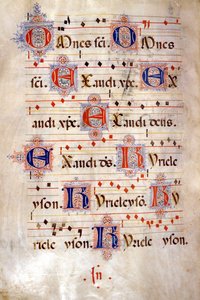 Omnes sci. Omnes
sci. Exaudi xpe. Ex
audi xpe. Exaudi deus.
Exaudi ds. Kyriele
yson. Kyrieleyson. K
yriele yson. Kyriele yson.